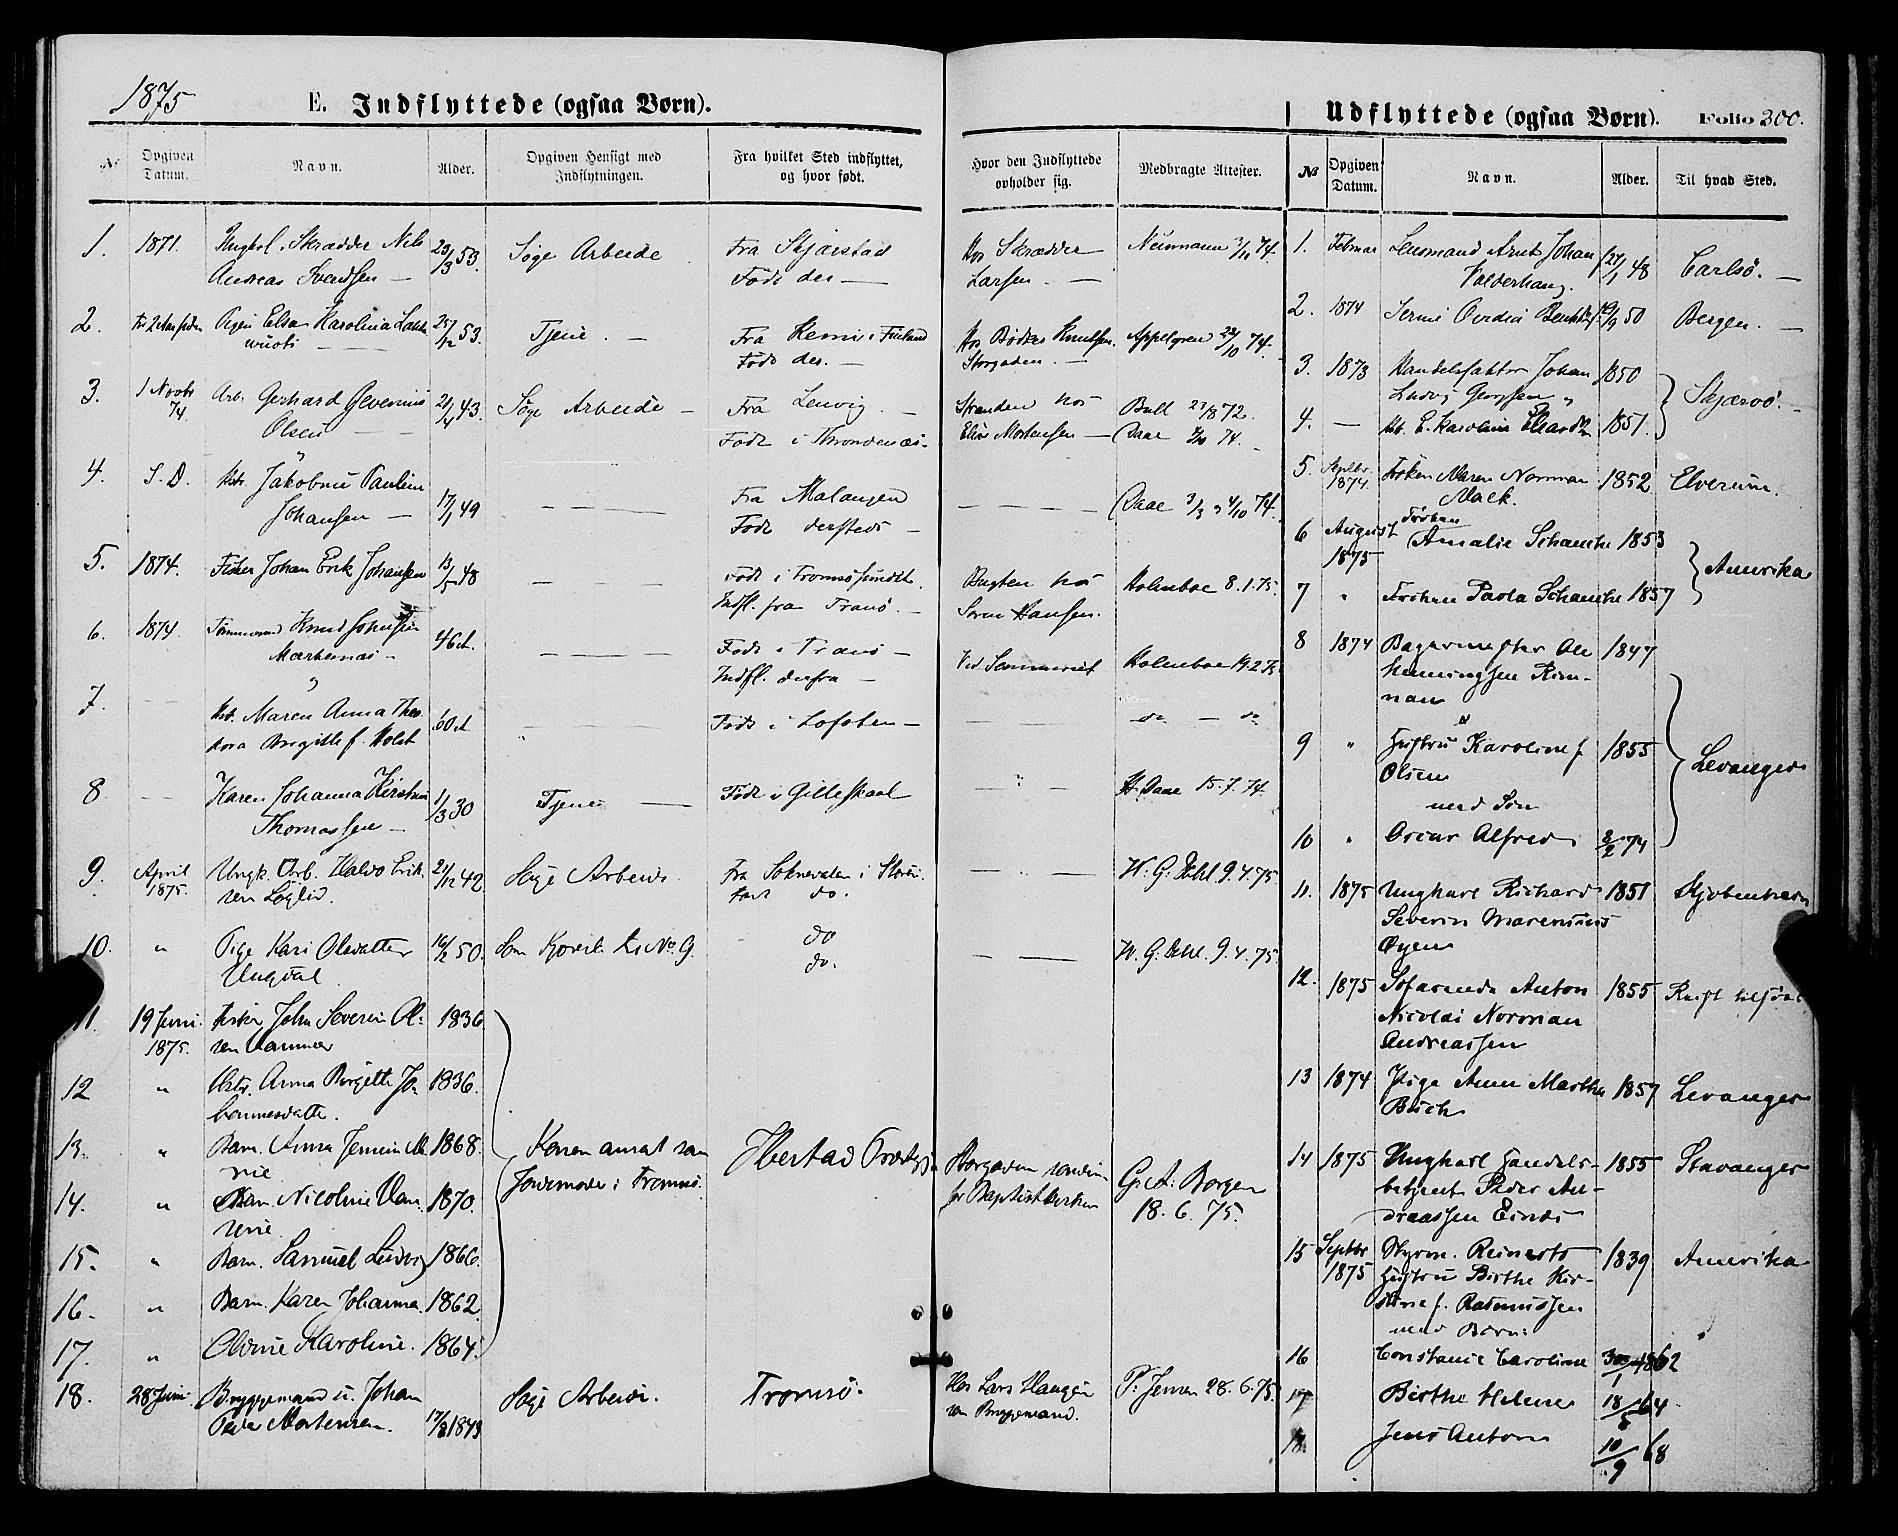 1875
E. Indflyttede (ogsaa Børn).
№
Opgiven Datum.
Navn.
Alder.
Opgiven Hensigt med Indflytningen.
Fra hvilket Sted indflyttet, og hvor født.
Hvor den Indflyttede opholder sig.
Medbragte Attester.
1. 1871. Ungkrl. Skrædder Nils 23/3 53. Søge Arbeide Fra Skjærstad Hos Skrædder Neumann 3/11 74
Andreas Svendsen — Født der — Larsen. —
2. Pigen Elsa Karolina 25/12 53. Tjene. — Fra Kemi i Finland Hos Bødker Knutsen. Appelgren 22/10 74.
Født der. — Storgaden. —
3. 1 Novbr 74. Arb. Gerhard Severin 21/4 43. Søge Arbeide — Fra Lenvig. — Stranden hos Bull 27/8 72.
Olsen Født i Throndenæs. Elias Mortensen — Daae 74.
4. S. D. Jakobine Pauline 17/1 49 Fra Malangen Daae 3/3 & 4/10 74.
Johansen — Født dersteds —
5. 1874. Fisker Johan Erik Johansen 13/5 48 Født i Tromsøsundet. Bugten hos Holmboe 8.1.75.
Indfl. fra Tranø. — Søren Hansen.
6. 1874. Tømmermand Knud Johnsen 46 a. Født i Tranø — Ved Holmboe 19.2.75
Indfl. derfra —
7. Maren Anna Theo- 60 a Født i Lofoten — do — do
dora Birgitte f. Holst
8 Karen Johanna Kirstine 1/3 30 Tjene — Født i Gilleskaal H. Daae 15.7.74.
Thomassen —
9. April 1875. Ungk. Arb. Halvo Erik- 21/12 42 Søge Arbeide. Fra Soknedalen i Støren W. G. Dahl 9.4.75
sen Løglid. født do.
10. " Pige Kari Olsdatter 16/2 50. Som Kjærest til No 9. do W. G. Dahl 9.4.75.
do.
11 19 Juni 1875. Fisker John Severin Ol- 1836
sen
12 " Anna Birgitte Jo- 1836.
hannesdatter.
13. " Barn. Anna Jensine Ma- 1868. Konen ansat som Ibestad Præstegj. Storgaden
rie
14. " Barn. Nicoline 1870. Jordemoder i Tromsø. for Baptistkirken G. A. Borgen
18. 6. 75.
15. " Barn. Samuel Ludvig 1866.
16. " Barn. Karen Johanna. 1862.
17. " Oldine Karoline. 1864.
18. 28 Juni. Bryggemand u. Johan Søge Arbeide. Tromsø. Hos Lars Haugen P. Jensen 28.6.75.
Peder Mortensen. 17/8 1843 som Bryggemand.
Udflyttede (ogsaa Børn). Folio 300.
№
Opgiven Datum.
Navn.
Alder.
Til hvad Sted.
1. Februar Lensmand Arnt Johan 27/1 48 Carlsø. —
Valderhaug.
2. 1874 50 Bergen. —
3. 1873 Handelsfaktor Johan 1850 Skjervø. —
Ludvig
4. — E. Karoline 1851.
5. Septbr. 1874. Frøken Maren Norman 1852 Elverum.
Mack.
6 August 1875 Frøken
Amalie Schancke 1853 Amerika
7 " Frøken Paola Schancke 1857
8 1874 Bagermester Ole 1847
Henningsen Rim-
nan
9 " Hustru Karoline f. 1855 Levanger
Olsen
med Søn
10 " Oscar Alfred 8/2 74
11. 1875 Ungkarl Richard 1851 Kjøbenhavn
Severin Marensius
Øyen
12. 1875 Sofarende Anton 1855 Reist tilsøes
Nicolai Norman
Andreassen
13 1874 Pige Anne Marthe 1857 Levanger
Buch
14 1875 Ungkarl Handels- 1855 Stavanger
betjent Peder An-
dreassen
15 Septbr 1875 Styrm. Reinerts 1839 Amerika
Hustru Birthe Kir-
stine f. Rasmussen
med Børn:
16 Constance Caroline 30/1 1862
17 Birthe Helene 18/5 64
18. Jens Anton 10/9 68